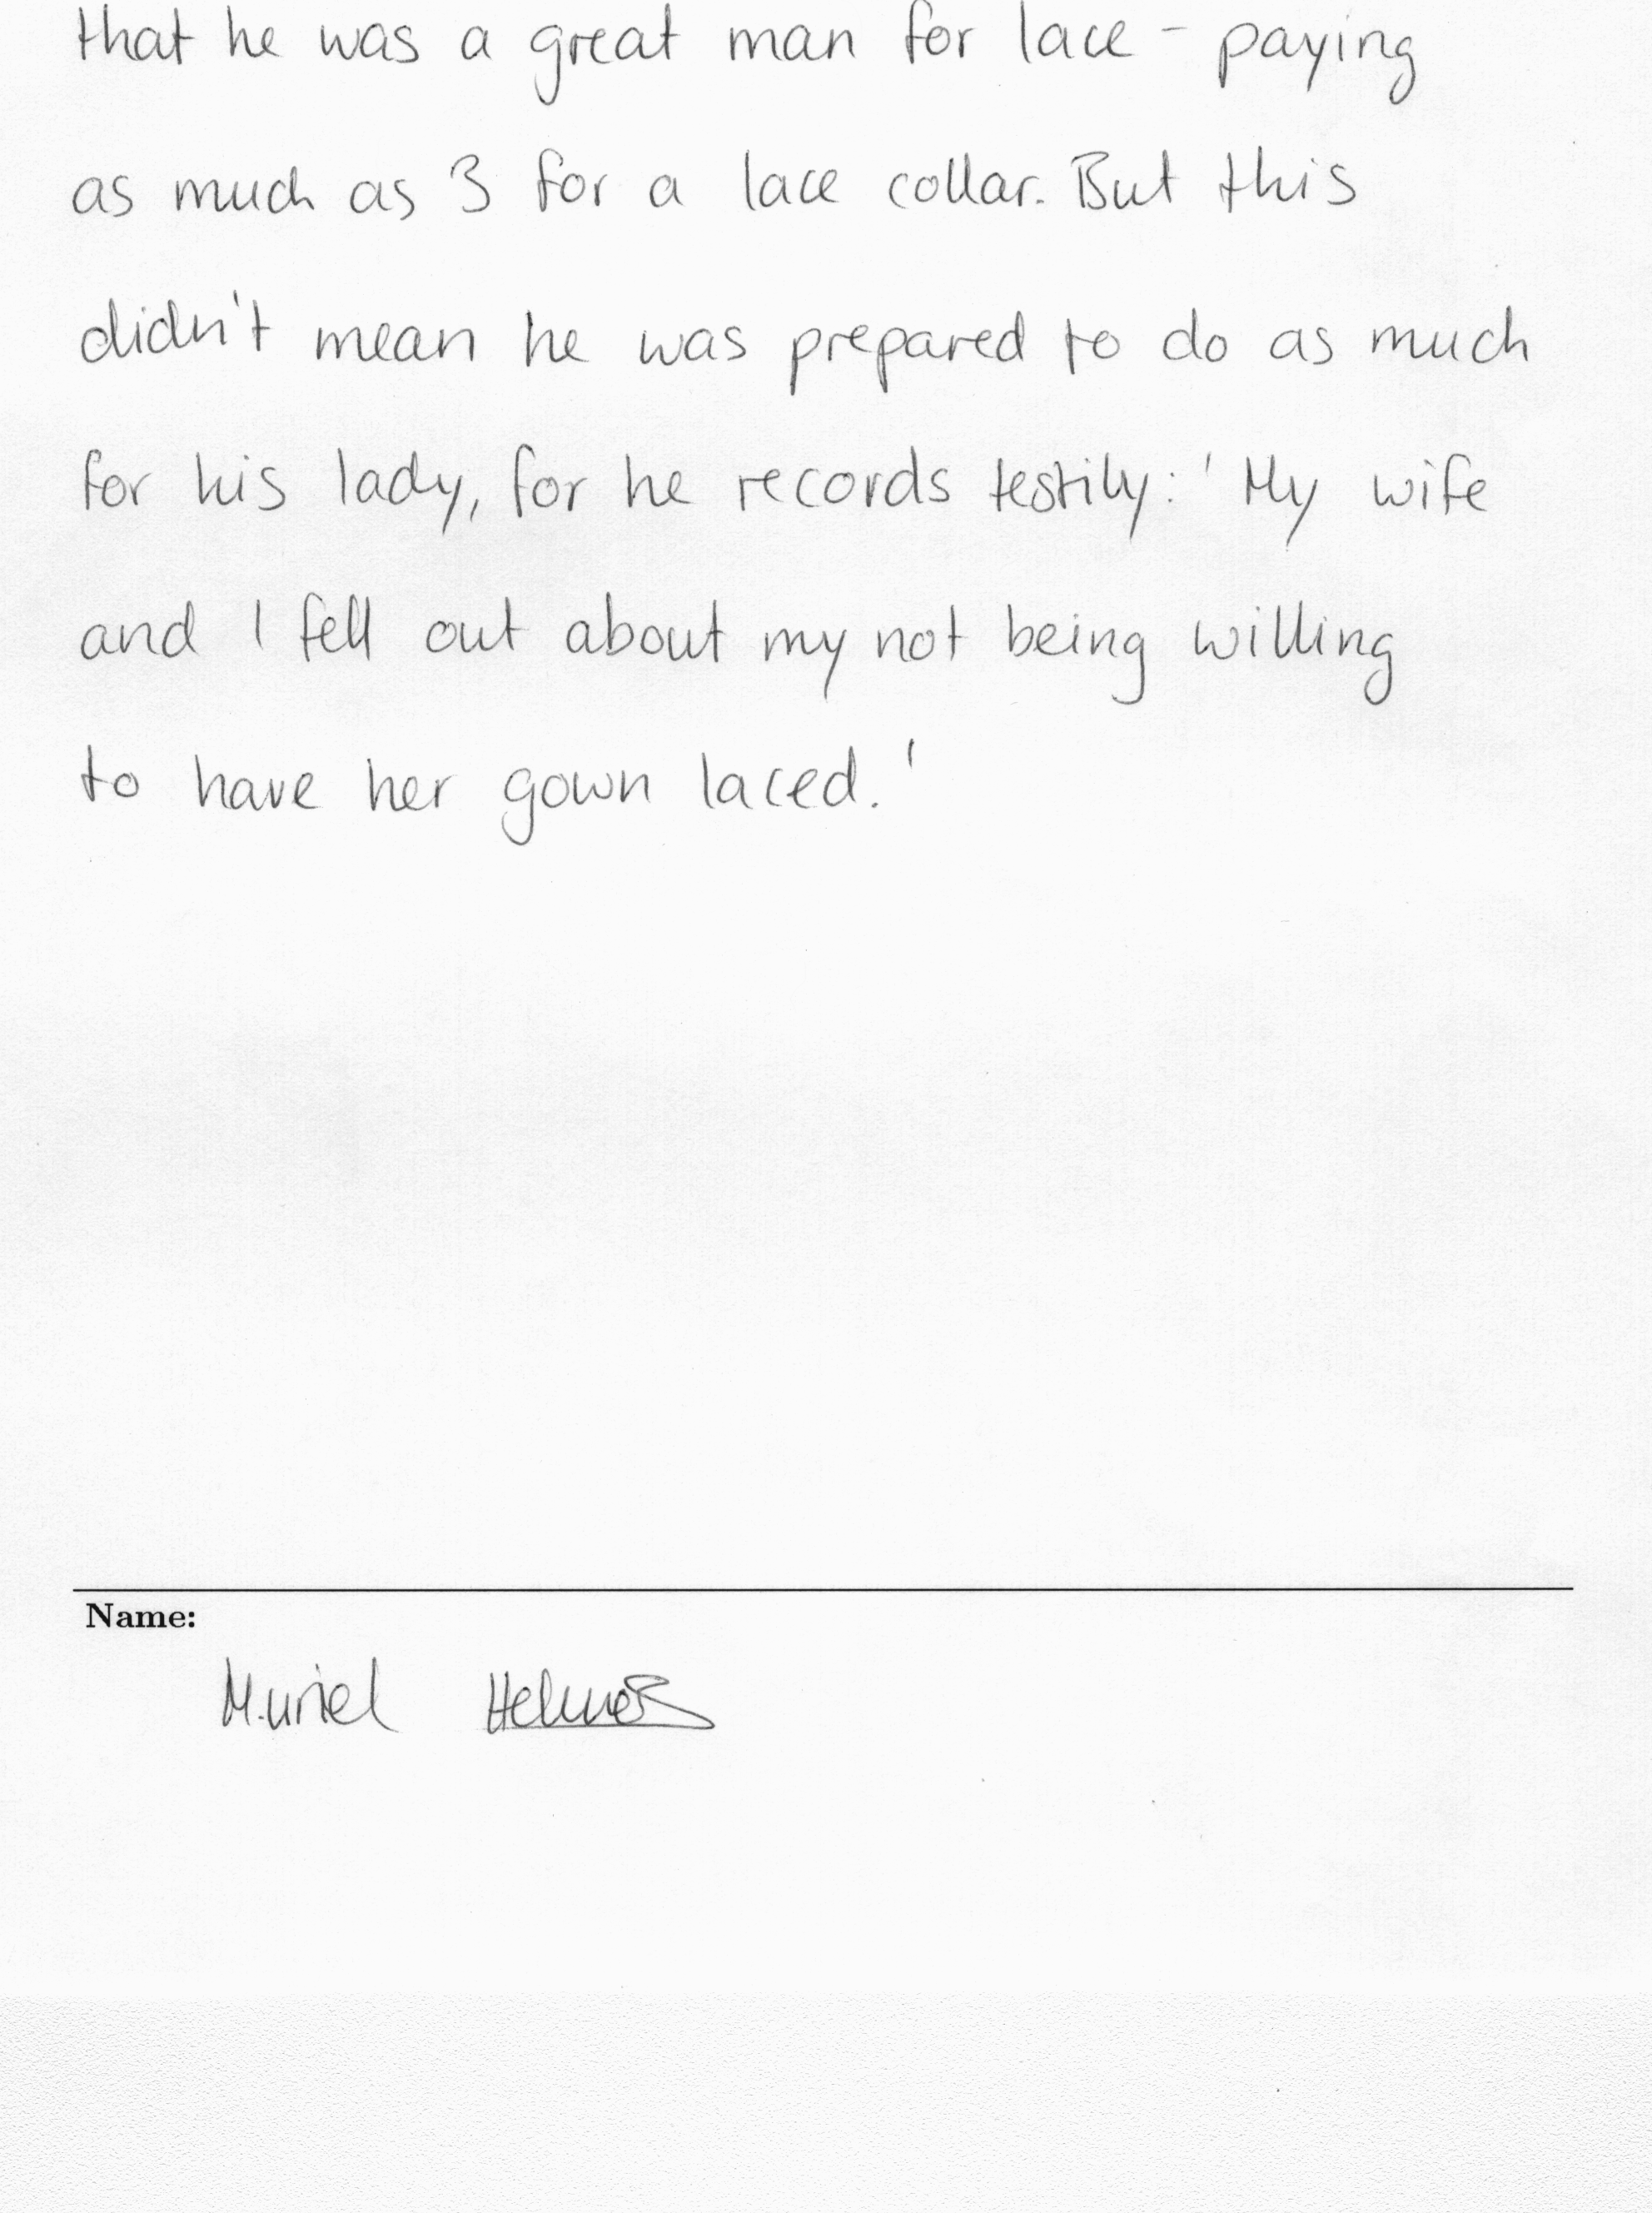 that he was a great man for lace - paying
as much as 3 for a lace collar. But this
didn't mean he was prepared to do as much
for his lady, for he records testily: ' My wife
and I fell out about my not being willing
to have her gown laced. '
Name:
Muriel